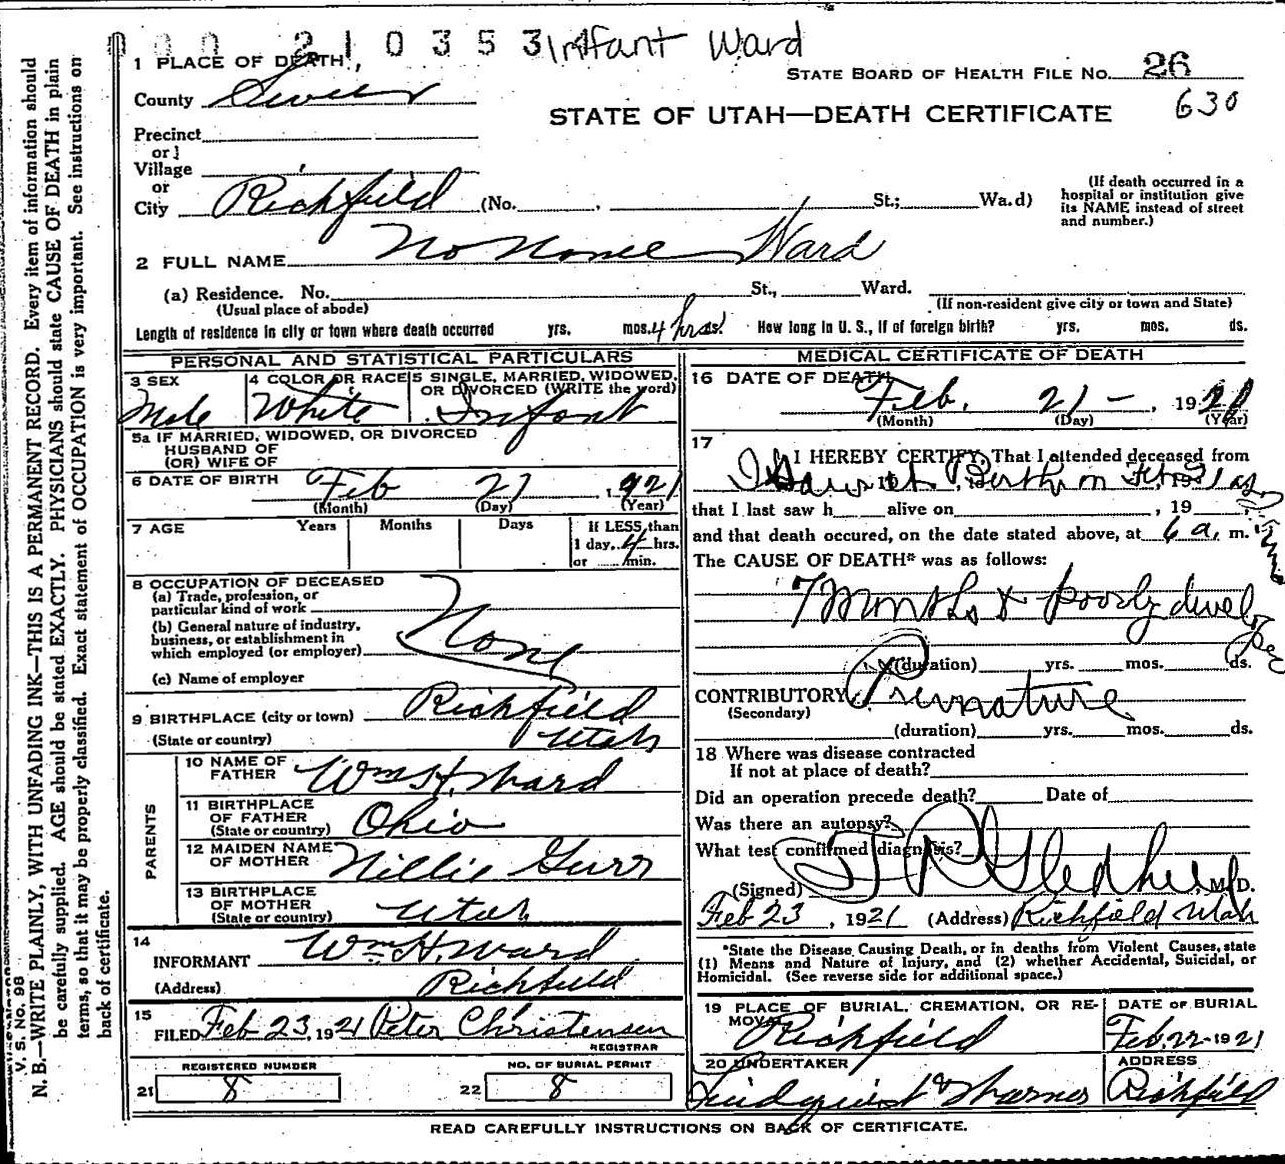 000 210353 Infant Ward
1 PLACE OF DEATH,
STATE BOARD OF HEALTH FILE No. 26
County Sevier
630
STATE OF UTAH—DEATH CERTIFICATE
Precinct
or
Village
or
City Richfield (No. , St.; Wa.d)
(If death occurred in a
hospital or institution give
its NAME instead of street
and number.)
2 FULL NAME No Name Ward
(a) Residence. No. St., Ward.
(Usual place of abode)
(If non-resident give city or town and State)
Length of residence in city or town where death occurred yrs. mos. 4 hrs ds. How long in U. S., if of foreign birth? yrs. mos. ds.
PERSONAL AND STATISTICAL PARTICULARS
3 SEX
Male
4 COLOR OR RACE
White
5 SINGLE, MARRIED, WIDOWED,
OR DIVORCED (WRITE the word)
Infant
5a IF MARRIED, WIDOWED, OR DIVORCED
HUSBAND OF
(OR) WIFE OF
6 DATE OF BIRTH
Feb 21, 1921
(Month) (Day) (Year)
7 AGE Years Months Days
If LESS than
1 day, 4 hrs.
or min.
8 OCCUPATION OF DECEASED
(a) Trade, profession, or
particular kind of work
(b) General nature of industry,
business, or establishment in
which employed (or employer)
None
(c) Name of employer
9 BIRTHPLACE (city or town) Richfield
(State or country) Utah
PARENTS
10 NAME OF
FATHER Wm H. Ward
11 BIRTHPLACE
OF FATHER
(State or country) Ohio
12 MAIDEN NAME
OF MOTHER Nillie Gurr
13 BIRTHPLACE
OF MOTHER
(State or country) Utah
14
INFORMANT Wm H. Ward
(Address) Richfield
15
FILED Feb 23, 1921 Peter Christensen
REGISTRAR
REGISTERED NUMBER
21 8
NO. OF BURIAL PERMIT
22 8
MEDICAL CERTIFICATE OF DEATH
16 DATE OF DEATH
Feb. 21 — , 19 21
(Month) (Day) (Year)
17
I HEREBY CERTIFY, That I attended deceased from
Birth on Feb 21
that I last saw h alive on , 19
and that death occured, on the date stated above, at 6 a. m.
The CAUSE OF DEATH* was as follows:
7 months & poorly developed
(duration) yrs. mos. ds.
CONTRIBUTORY Premature
(Secondary)
(duration) yrs. mos. ds.
18 Where was disease contracted
If not at place of death?
Did an operation precede death? Date of
Was there an autopsy?
What test confirmed diagnosis?
(Signed) Gledhill, M. D.
Feb 23, 1921 (Address) Richfield Utah
*State the Disease Causing Death, or in deaths from Violent Causes, state
(1) Means and Nature of Injury, and (2) whether Accidental, Suicidal, or
Homicidal. (See reverse side for additional space.)
19 PLACE OF BURIAL, CREMATION, OR RE-
MOVAL Richfield
DATE OF BURIAL
Feb. 22 - 1921
20 UNDERTAKER
Lindquist & Warner
ADDRESS
Richfield
READ CAREFULLY INSTRUCTIONS ON BACK OF CERTIFICATE.
V. S. No. 98
N. B.—WRITE PLAINLY, WITH UNFADING INK—THIS IS A PERMANENT RECORD. Every item of information should
be carefully supplied. AGE should be stated EXACTLY. PHYSICIANS should state CAUSE OF DEATH in plain
terms, so that it may be properly classified. Exact statement of OCCUPATION is very important. See instructions on
back of certificate.